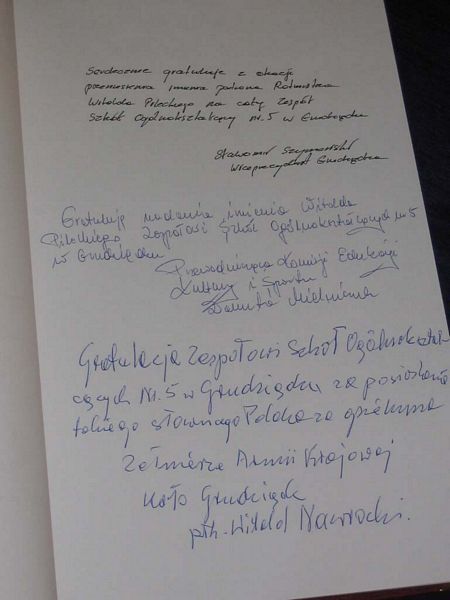 Serdecznie gratuluję z okazji
przeniesienia imienia patrona Rotmistrza
Witolda Pileckiego na cały Zespół
Szkół Ogólnokształcących nr. 5 w Grudziądzu
Sławomir Szymański
Wiceprezydent Grudziądza
Gratuluję nadania imienia Witolda
Pileckiego Zespołowi Szkół Ogólnokształcących nr 5
w Grudziądzu
Przewodnicząca Komisji Edukacji
Kultury i Sportu
Danuta
Gratulacja Zespołowi Szkół Ogólnokształ-
cących Nr. 5 w Grudziądzu za posiadanie
takiego sławnego Polaka za
Żołnierze Armii Krajowej
Koło Grudziądz
Witold Nawrocki.